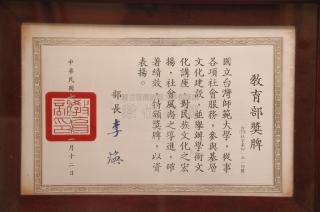 教育部獎牌
國立台灣師範大學，從事
各項社會服務，參與基層
文化建設，並舉辦學術文
化講座，對民族文化之宏
揚，社會風尚之導進，確
著績效，特頒獎牌，以資
表揚。
部長 李煥
中華民國
月十二日